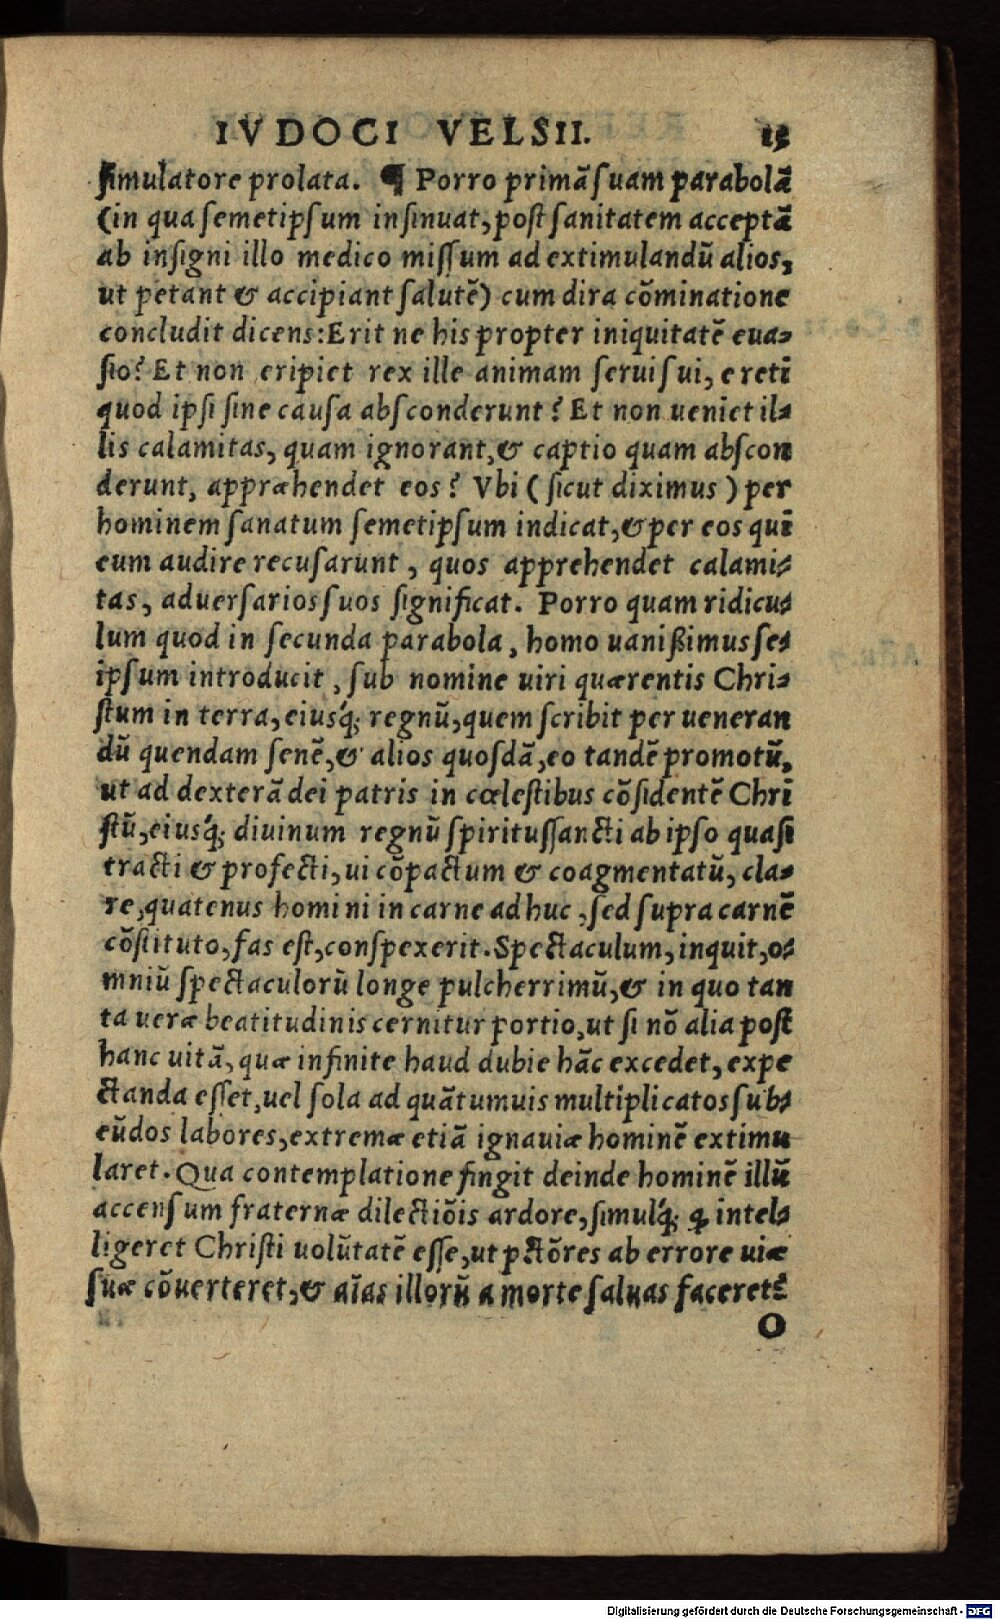 IVDOCI VELSII. 15
simulatore prolata. ¶ Porro primā suam parabolā
(in qua semetipsum insinuat, post sanitatem acceptā
ab insigni illo medico missum ad extimulandū alios,
ut petant & accipiant salutē) cum dira cōminatione
concludit dicens: Erit ne his propter iniquitatē eua-
sio? Et non eripiet rex ille animam serui sui, e reti
quod ipsi sine causa absconderunt? Et non ueniet il-
lis calamitas, quam ignorant, & captio quam abscon
derunt, appræhendet eos? Vbi (sicut diximus) per
hominem sanatum semetipsum indicat, & per eos qui
eum audire recusarunt, quos apprehendet calami-
tas, aduersarios suos significat. Porro quam ridicu-
lum quod in secunda parabola, homo uanißimus se-
ipsum introducit, sub nomine uiri quærentis Chri-
stum in terra, eiusq́; regnū, quem scribit per ueneran
dū quendam senē, & alios quosdā, eo tandē promotū,
ut ad dexterā dei patris in cœlestibus cōsidentē Chri
stū, eiusq́; diuinum regnū spiritussancti ab ipso quasi
tracti & profecti, ui cōpactum & coagmentatū, cla-
re, quatenus homini in carne adhuc, sed supra carnē
cōstituto, fas est, conspexerit. Spectaculum, inquit, o-
mniū spectaculorū longe pulcherrimū, & in quo tan
ta ueræ beatitudinis cernitur portio, ut si nō alia post
hanc uitā, quæ infinite haud dubie hāc excedet, expe
ctanda esset, uel sola ad quātumuis multiplicatos sub-
eūdos labores, extremæ etiā ignauiæ hominē extimu
laret. Qua contemplatione fingit deinde hominē illū
accensum fraternæ dilectiōis ardore, simulq́; ꝙ intel-
ligeret Christi uolūtatē esse, ut pctōres ab errore uiæ
suæ cōuerteret, & aīas illorū a morte saluas faceret:
O
Digitalisierung gefördert durch die Deutsche Forschungsgemeinschaft - DFG